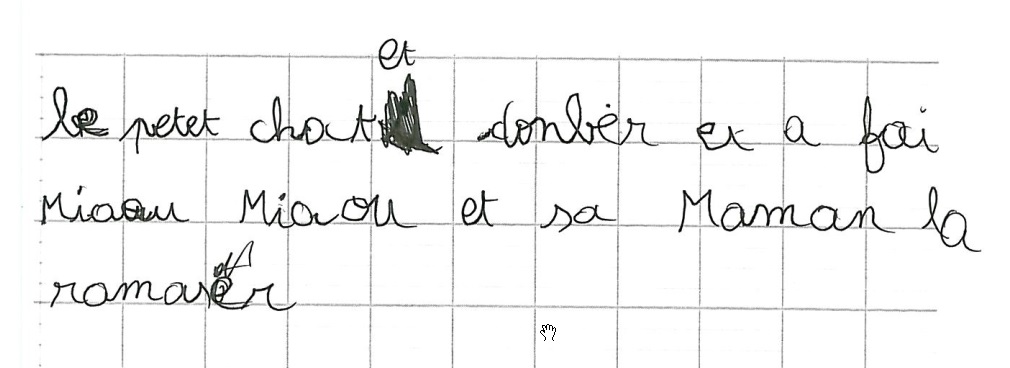 et
le petet chat donbér et a fai
Miaou Miaou et sa Maman la
ramasér